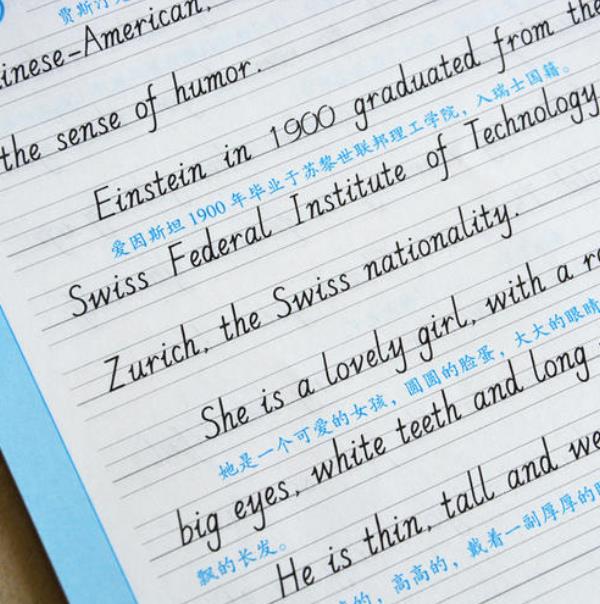 贾斯汀
inese-American,
the sense of humor.
Einstein in 1900 graduated from the
爱因斯坦 1900 年毕业于苏黎世联邦理工学院，入瑞士国籍。
Swiss Federal Institute of Technology
Zurich, the Swiss nationality.
She is a lovely girl, with a
她是一个可爱的女孩，圆圆的脸蛋，大大的眼睛
big eyes, white teeth and long
飘的长发。
He is thin, tall and we
的，高高的，戴着一副厚厚的